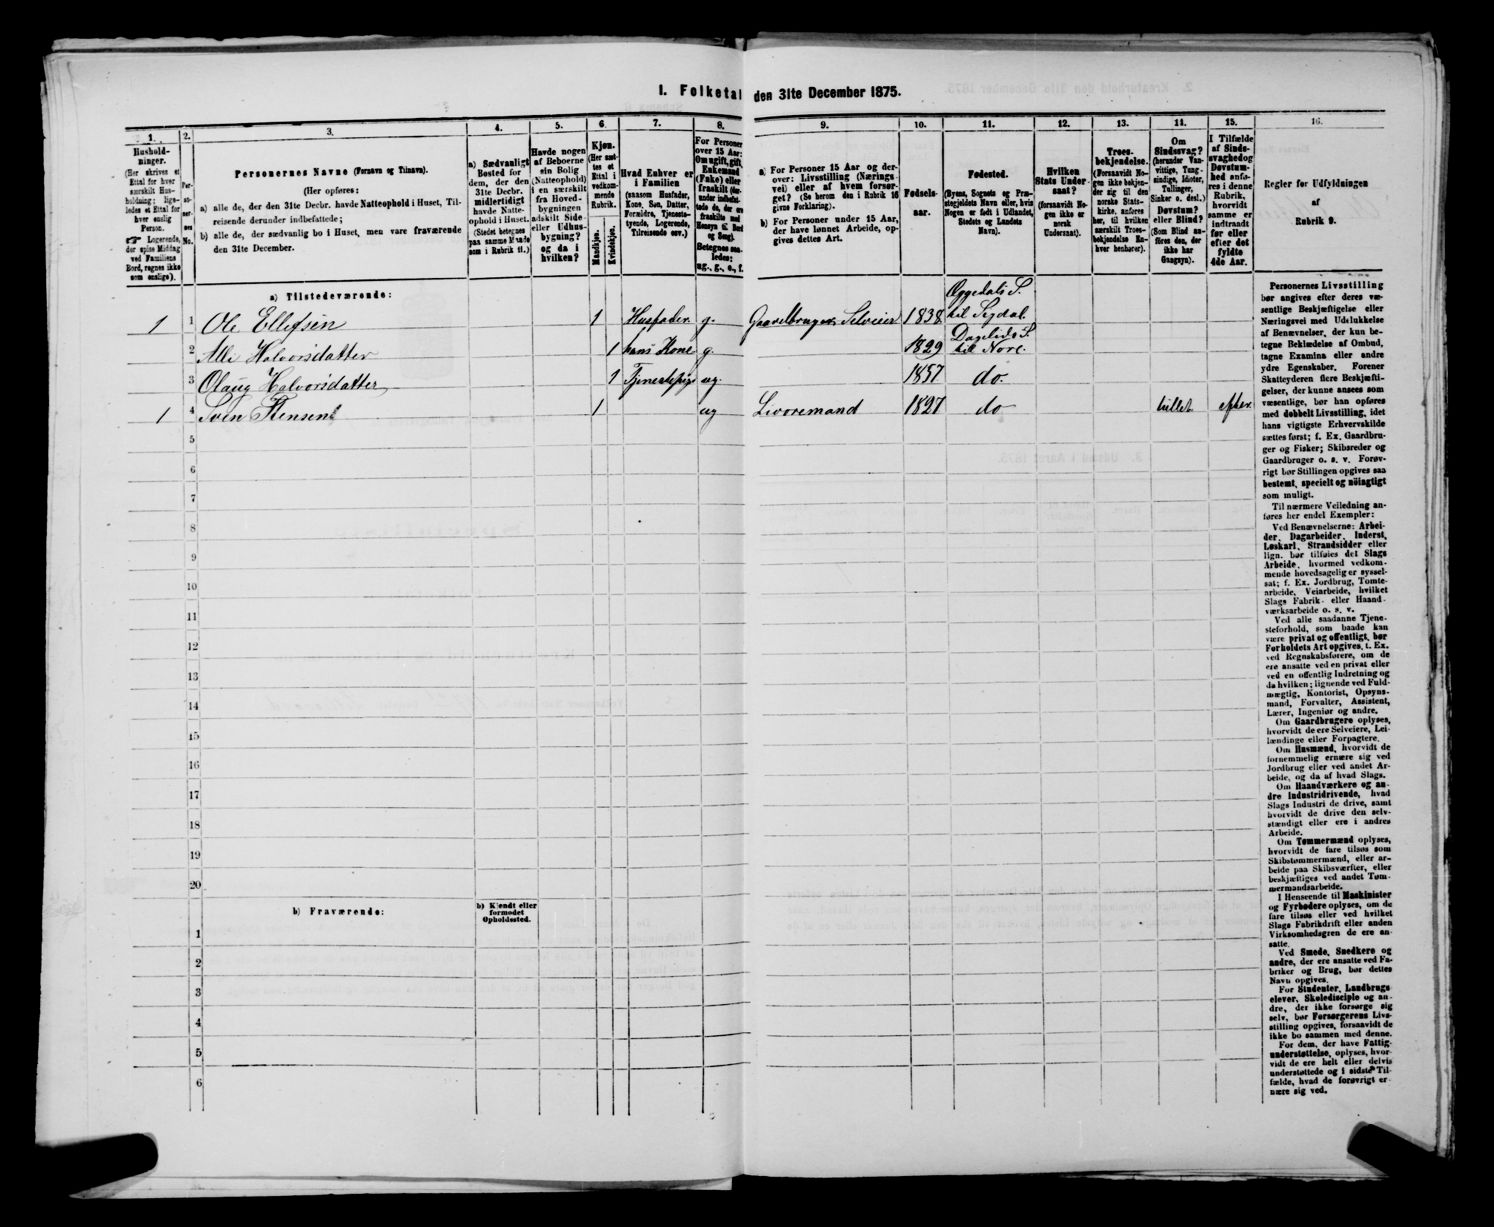 I. Folketal den 31te December 1875.
1. 2. 3. 4. 5. 6. 7. 8. 9. 10. 11. 12. 13. 14. 15. 16.
Husholdninger.
(Her skrives et
Ettal for hver
særskilt Husholdning;
ligeledes et Ettal for
hver enslig
Person.
☞ Logerende,
der spise Middag
ved Familiens
Bord, regnes ikke
som enslige).
Personernes No.
Personernes Navne (Fornavn og Tilnavn).
(Her opføres:
a) alle de, der den 31te Decbr. havde Natteophold i Huset, Tilreisende derunder indbefattede;
b) alle de, der sædvanlig bo i Huset, men vare fraværende
den 31te December.
a) Sædvanligt
Bosted for
dem, der den
31te Decbr.
midlertidigt
havde Natteophold i Huset.
(Stedet betegnes
paa samme Maade
som i Rubrik 11.)
Havde nogen
af Beboerne
sin Bolig
(Natteophold)
i en særskilt
fra Hovedbygningen
adskilt Side- eller Udhusbygning?
og da i
hvilken?
Kjøn.
(Her sættes et
Ettal i
vedkommende
Rubrik.
Mandkjøn.
Kvindekjøn.
Hvad Enhver er
i Familien
(saasom Husfader,
Kone, Søn, Datter,
Forældre, Tjenestetyende, Logerende,
Tilreisende osv.)
For Personer
over 15 Aar:
Om ugift, gift,
Enkemand
(Enke) eller
fraskilt
Betegnes saaledes:
ug., g., e., f.
a) For Personer 15 Aar og derover: Livsstilling (Næringsvei) eller af hvem forsørget? (Se herom den i Rubrik 16
givne Forklaring).
b) For Personer under 15 Aar,
der have lønnet Arbeide, opgives dettes Art.
Fødselsaar.
Fødested.
(Byens, Sognets og Præstegjeldets Navn eller, hvis
Nogen er født i Udlandet,
Stedets og Landets
Navn).
Hvilken
Stats Undersaat?
(forsaavidt Nogen ikke er
norsk
Undersaat).
Troesbekjendelse.
(Forsaavidt Nogen ikke bekjender sig til den
norske Statskirke, anføres
her, til hvilken
særskilt Troesbekjendelse Enhver henhører).
Om
Sindssvag?
(herunder Vanvittige, Tungsindige, Idioter,
Tullinger,
Sinker o. desl.)
Døvstum?
eller Blind?
(Som Blind anføres den, der
ikke har
Gangsyn).
I Tilfælde
af Sindssvaghed og
Døvstumhed anføres i denne
Rubrik,
hvorvidt
samme er
indtraadt
før eller
efter det
fyldte
4de Aar.
Regler for Udfyldningen
af
Rubrik 9.
a) Tilstedeværende:
1 1 Ole Ellefsen 1 Husfader g. Gaardbruger Selveier 1838 Eggedals S. til Sigdal.
2 Alli Halvorsdatter 1 hans Kone g. 1829 Dagalids S. till Nore.
3 Olaug Halvorsdatter 1 Tjenestepige ug. 1857 do.
1 4 Sven Stensen 1 ug Livøremand 1827 do tullet efter
5
6
7
8
9
10
11
12
13
14
15
16
17
18
19
20
b) Fraværende:
b) Kjendt eller
formodet
Opholdssted.
1
2
3
4
5
6
Personernes Livsstilling
bør angives efter deres væsentlige Beskjæftigelse eller
Næringsvei med Udelukkelse
af Benævnelser, der kun betegne Beklædelse af Ombud,
tagne Examina eller andre
ydre Egenskaber. Forener
Skatteyderen flere Beskjæftigelser, der kunne ansees som
væsentlige, bør han opføres
med dobbelt Livsstilling, idet
hans vigtigste Erhvervskilde
sættes først; f. Ex. Gaardbruger og Fisker; Skibsreder og
Gaardbruger o. s. v. Forøvrigt bør Stillingen opgives saa
bestemt, specielt og nöiagtigt
som muligt.
Til nærmere Veiledning anføres her endel Exempler:
Ved Benævnelserne: Arbeider, Dagarbeider, Inderst,
Løskarl, Strandsidder eller
lign. bør tilføies det Slags
Arbeide, hvormed vedkommende hovedsagelig er sysselsat; f. Ex. Jordbrug, Tomtearbeide, Veiarbeide, hvilket
Slags Fabrik- eller Haandværksarbeide o. s. v.
Ved alle saadanne Tjenesteforhold, som baade kan
være privat og offentligt, bør
Forholdets Art opgives, f. Ex.
ved Regnskabsførere, om de
ere ansatte ved en privat eller
ved en offentlig Indretning og
da hvilken; lignende ved Fuldmægtig, Kontorist, Opsynsmand, Forvalter, Assistent,
Lærer, Ingeniør og andre.
Om Gaardbrugere oplyses,
hvorvidt de ere Selveiere, Leilændinge eller Forpagtere.
Om Husmænd, hvorvidt de
fornemmelig ernære sig ved
Jordbrug eller ved andet Arbeide, og da af hvad Slags.
Om Haandværkere og andre Industridrivende, hvad
Slags Industri de drive, samt
hvorvidt de drive den selvstændigt eller ere i andres
Arbeide.
Om Tømmermænd oplyses,
hvorvidt de fare tilsøs som
Skibstømmermænd, eller arbeide paa Skibsværfter, eller
beskjæftiges ved andet Tømmermandsarbeide.
I Henseende til Maskinister
og Fyrbødere oplyses, om de
fare tilsøs eller ved hvilket
Slags Fabrikdrift eller anden
Virksomhedsgren de ere ansatte.
Ved Smede, Snedkere og
andre, der ere ansatte ved Fabriker og Brug, bør dettes
Navn opgives.
For Studenter, Landbrugselever, Skoledisciple og andre, der ikke forsørge sig
selv, bør Forsørgerens Livsstilling opgives, forsaavidt de
ikke bo sammen med denne.
For dem, der have Fattigunderstøttelse, oplyses, hvorvidt de ere helt eller delvis
understøttede og i sidste Tilfælde, hvad de forøvrigt ernære sig ved.